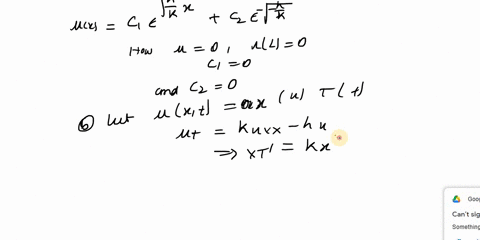 u(x) = C₁ e^√(h/k) x + C₂ e^-√(h/k)
How u = 0, u(L) = 0
C₁ = 0
and C₂ = 0
⑥ Let u(x,t) = x (x) T(t)
ut = k uxx - hu
⇒ XT' = kx
Goog
Can't sig
Something